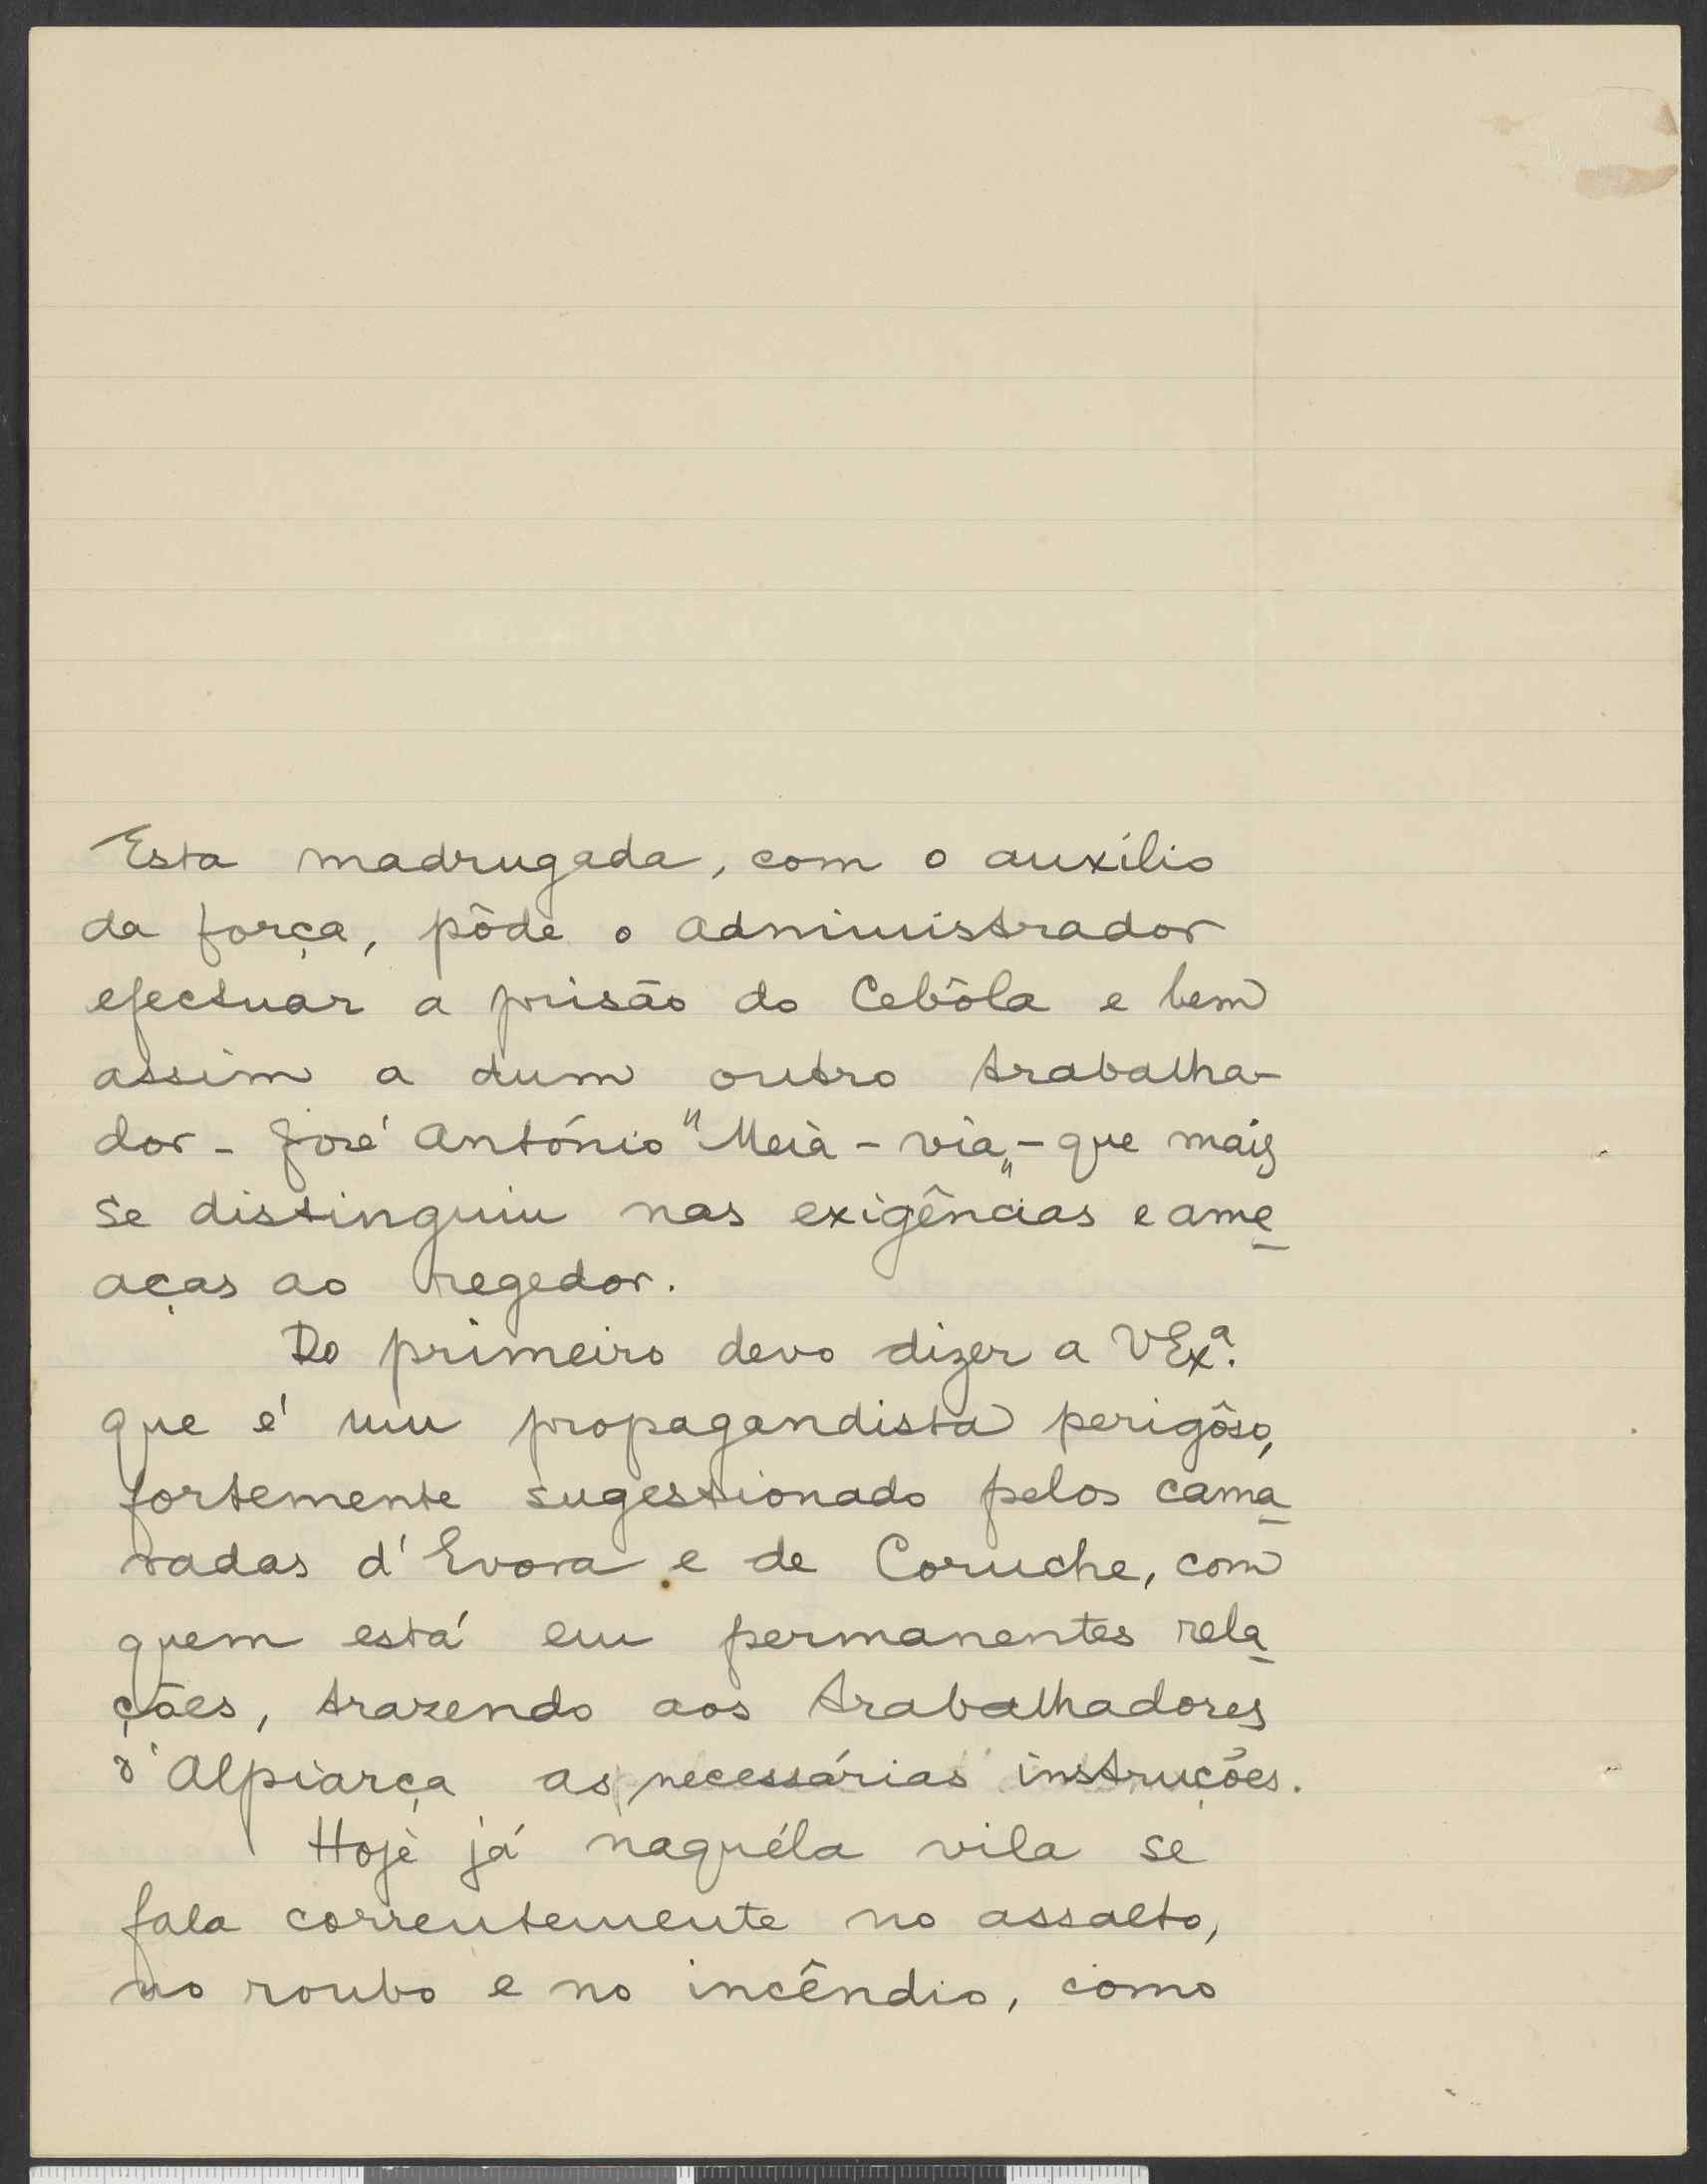 Esta madrugada, com o auxílio
da força, pôde o administrador
efectuar a prisão do Cebôla e bem
assim a dum outro trabalha-
dor - José António "Meia-via„ - que mais
se distinguiu nas exigências e ame
aças ao regedor.
Do primeiro devo dizer a VExª.
que é um propagandista perigôso,
fortemente sugestionado pelos cama
radas d'Evora e de Coruche, com
quem está em permanentes rela
ções, trazendo aos trabalhadores
d'Alpiarça as necessárias instruções.
Hoje já naquéla vila se
fala correntemente no assalto,
no roubo e no incêndio, como